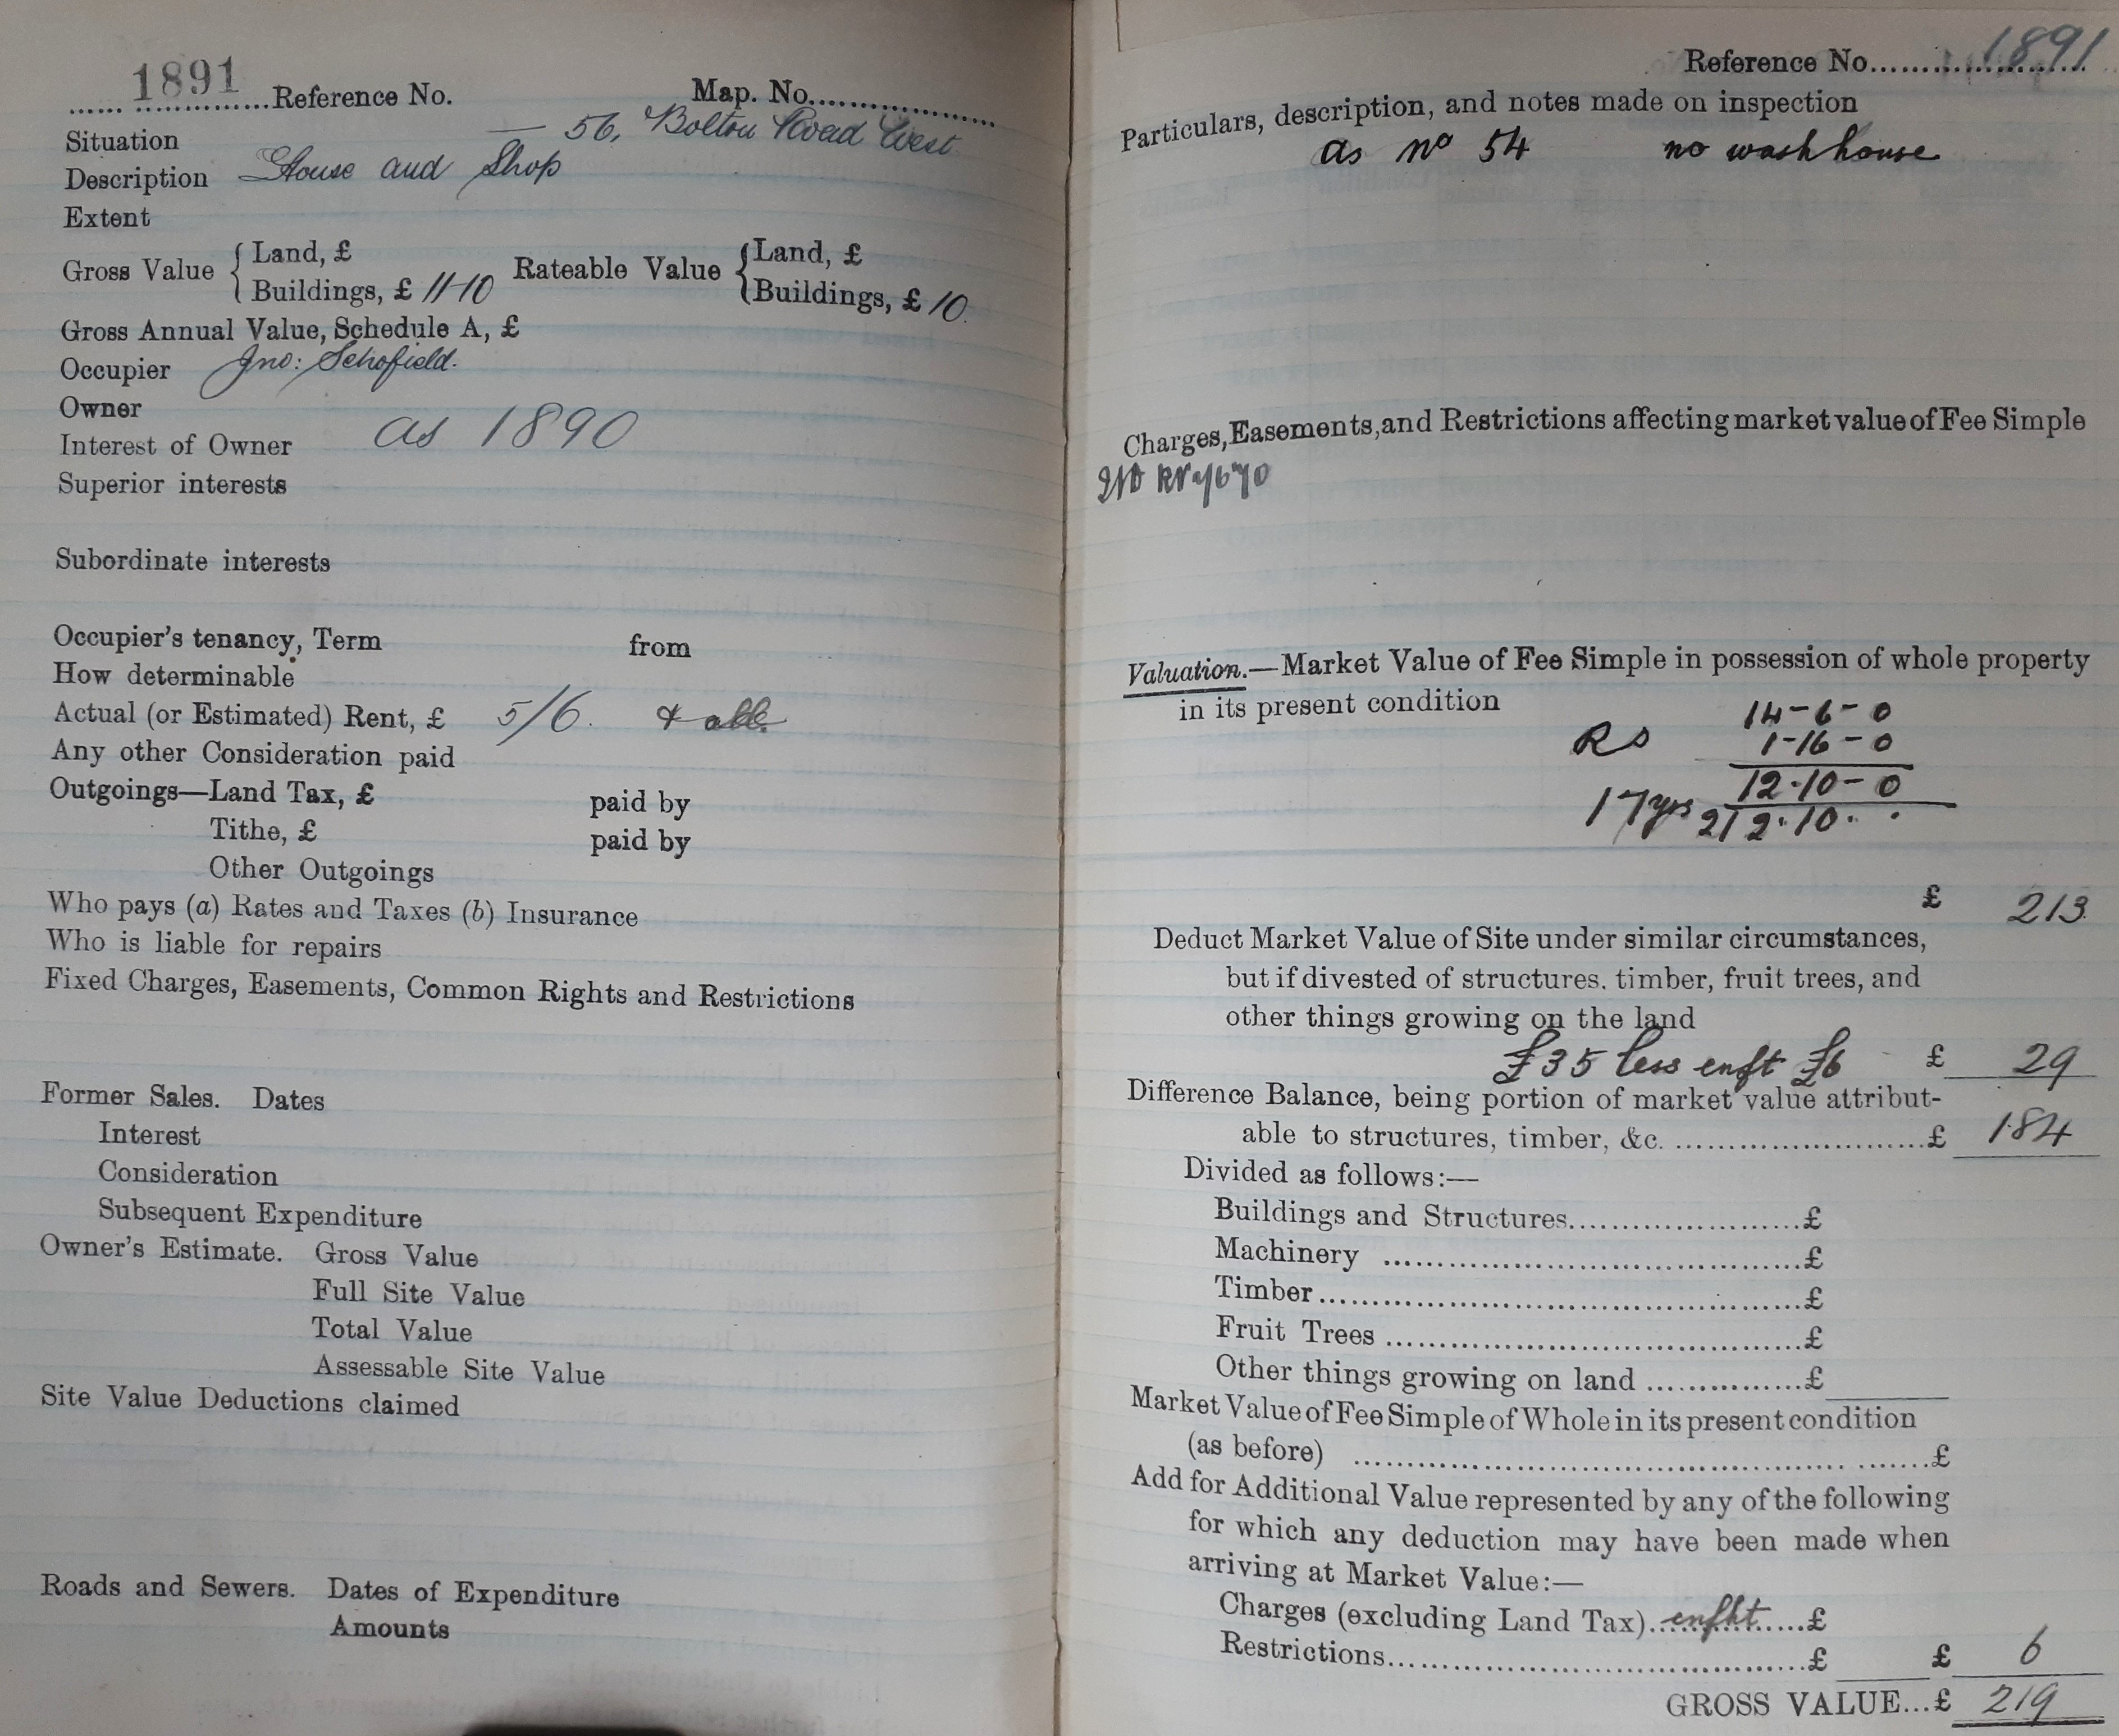 1891 Reference No. Map. No.
Situation — 56, Bolton Road West
Description House and Shop
Extent
Gross Value { Land, £ Rateable Value { Land, £
Buildings, £ 11-10 Buildings, £ 10.
Gross Annual Value, Schedule A, £
Occupier Jno: Schofield.
Owner
Interest of Owner as 1890
Superior interests
Subordinate interests
Occupier's tenancy, Term from
How determinable
Actual (or Estimated) Rent, £ 5/6.
Any other Consideration paid
Outgoings—Land Tax, £ paid by
Tithe, £ paid by
Other Outgoings
Who pays (a) Rates and Taxes (b) Insurance
Who is liable for repairs
Fixed Charges, Easements, Common Rights and Restrictions
Former Sales. Dates
Interest
Consideration
Subsequent Expenditure
Owner's Estimate. Gross Value
Full Site Value
Total Value
Assessable Site Value
Site Value Deductions claimed
Roads and Sewers. Dates of Expenditure
Amounts
Reference No. 1891
Particulars, description, and notes made on inspection
as no 54 no washhouse
Charges, Easements, and Restrictions affecting market value of Fee Simple
Valuation.—Market Value of Fee Simple in possession of whole property
in its present condition
14-6-0
Rs 1-16-0
12.10-0
17 yrs 212.10. .
£ 213.
Deduct Market Value of Site under similar circumstances,
but if divested of structures. timber, fruit trees, and
other things growing on the land
£35 less enft £6 £ 29
Difference Balance, being portion of market value attribut-
able to structures, timber, &c. £ 184
Divided as follows:—
Buildings and Structures £
Machinery £
Timber £
Fruit Trees £
Other things growing on land £
Market Value of Fee Simple of Whole in its present condition
(as before) £
Add for Additional Value represented by any of the following
for which any deduction may have been made when
arriving at Market Value:—
Charges (excluding Land Tax) enfht £
Restrictions £ £ 6
GROSS VALUE...£ 219